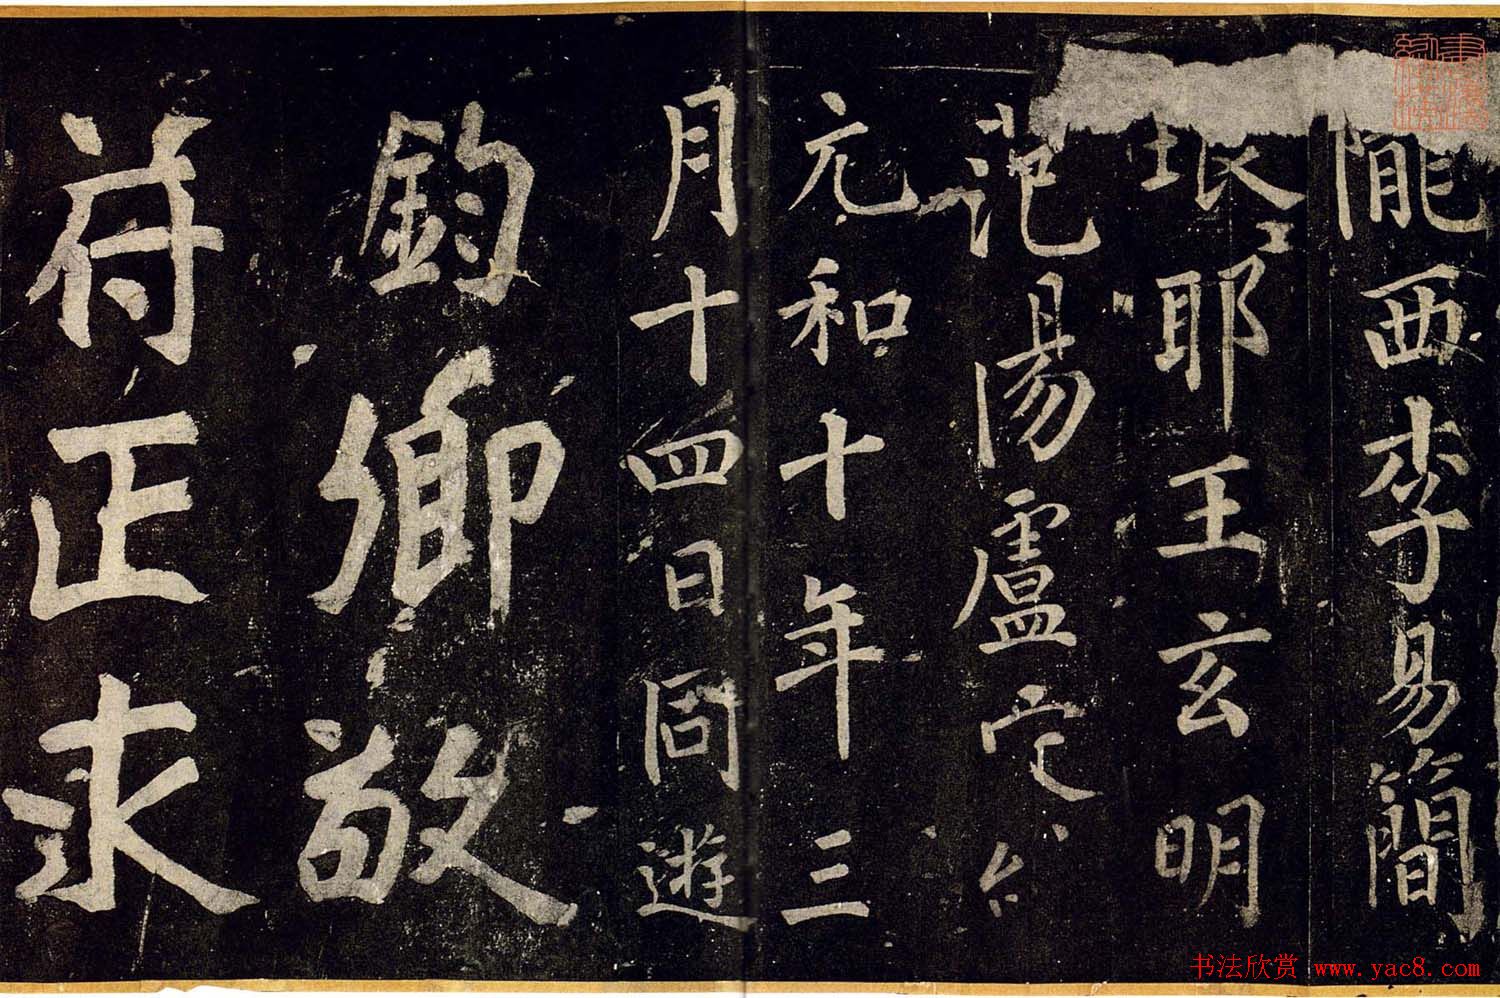 隴西李易簡
琅耶王玄明
范陽盧
元和十年三
月十四日同遊
鈞卿敬
符正求
书法欣赏 www.yac8.com